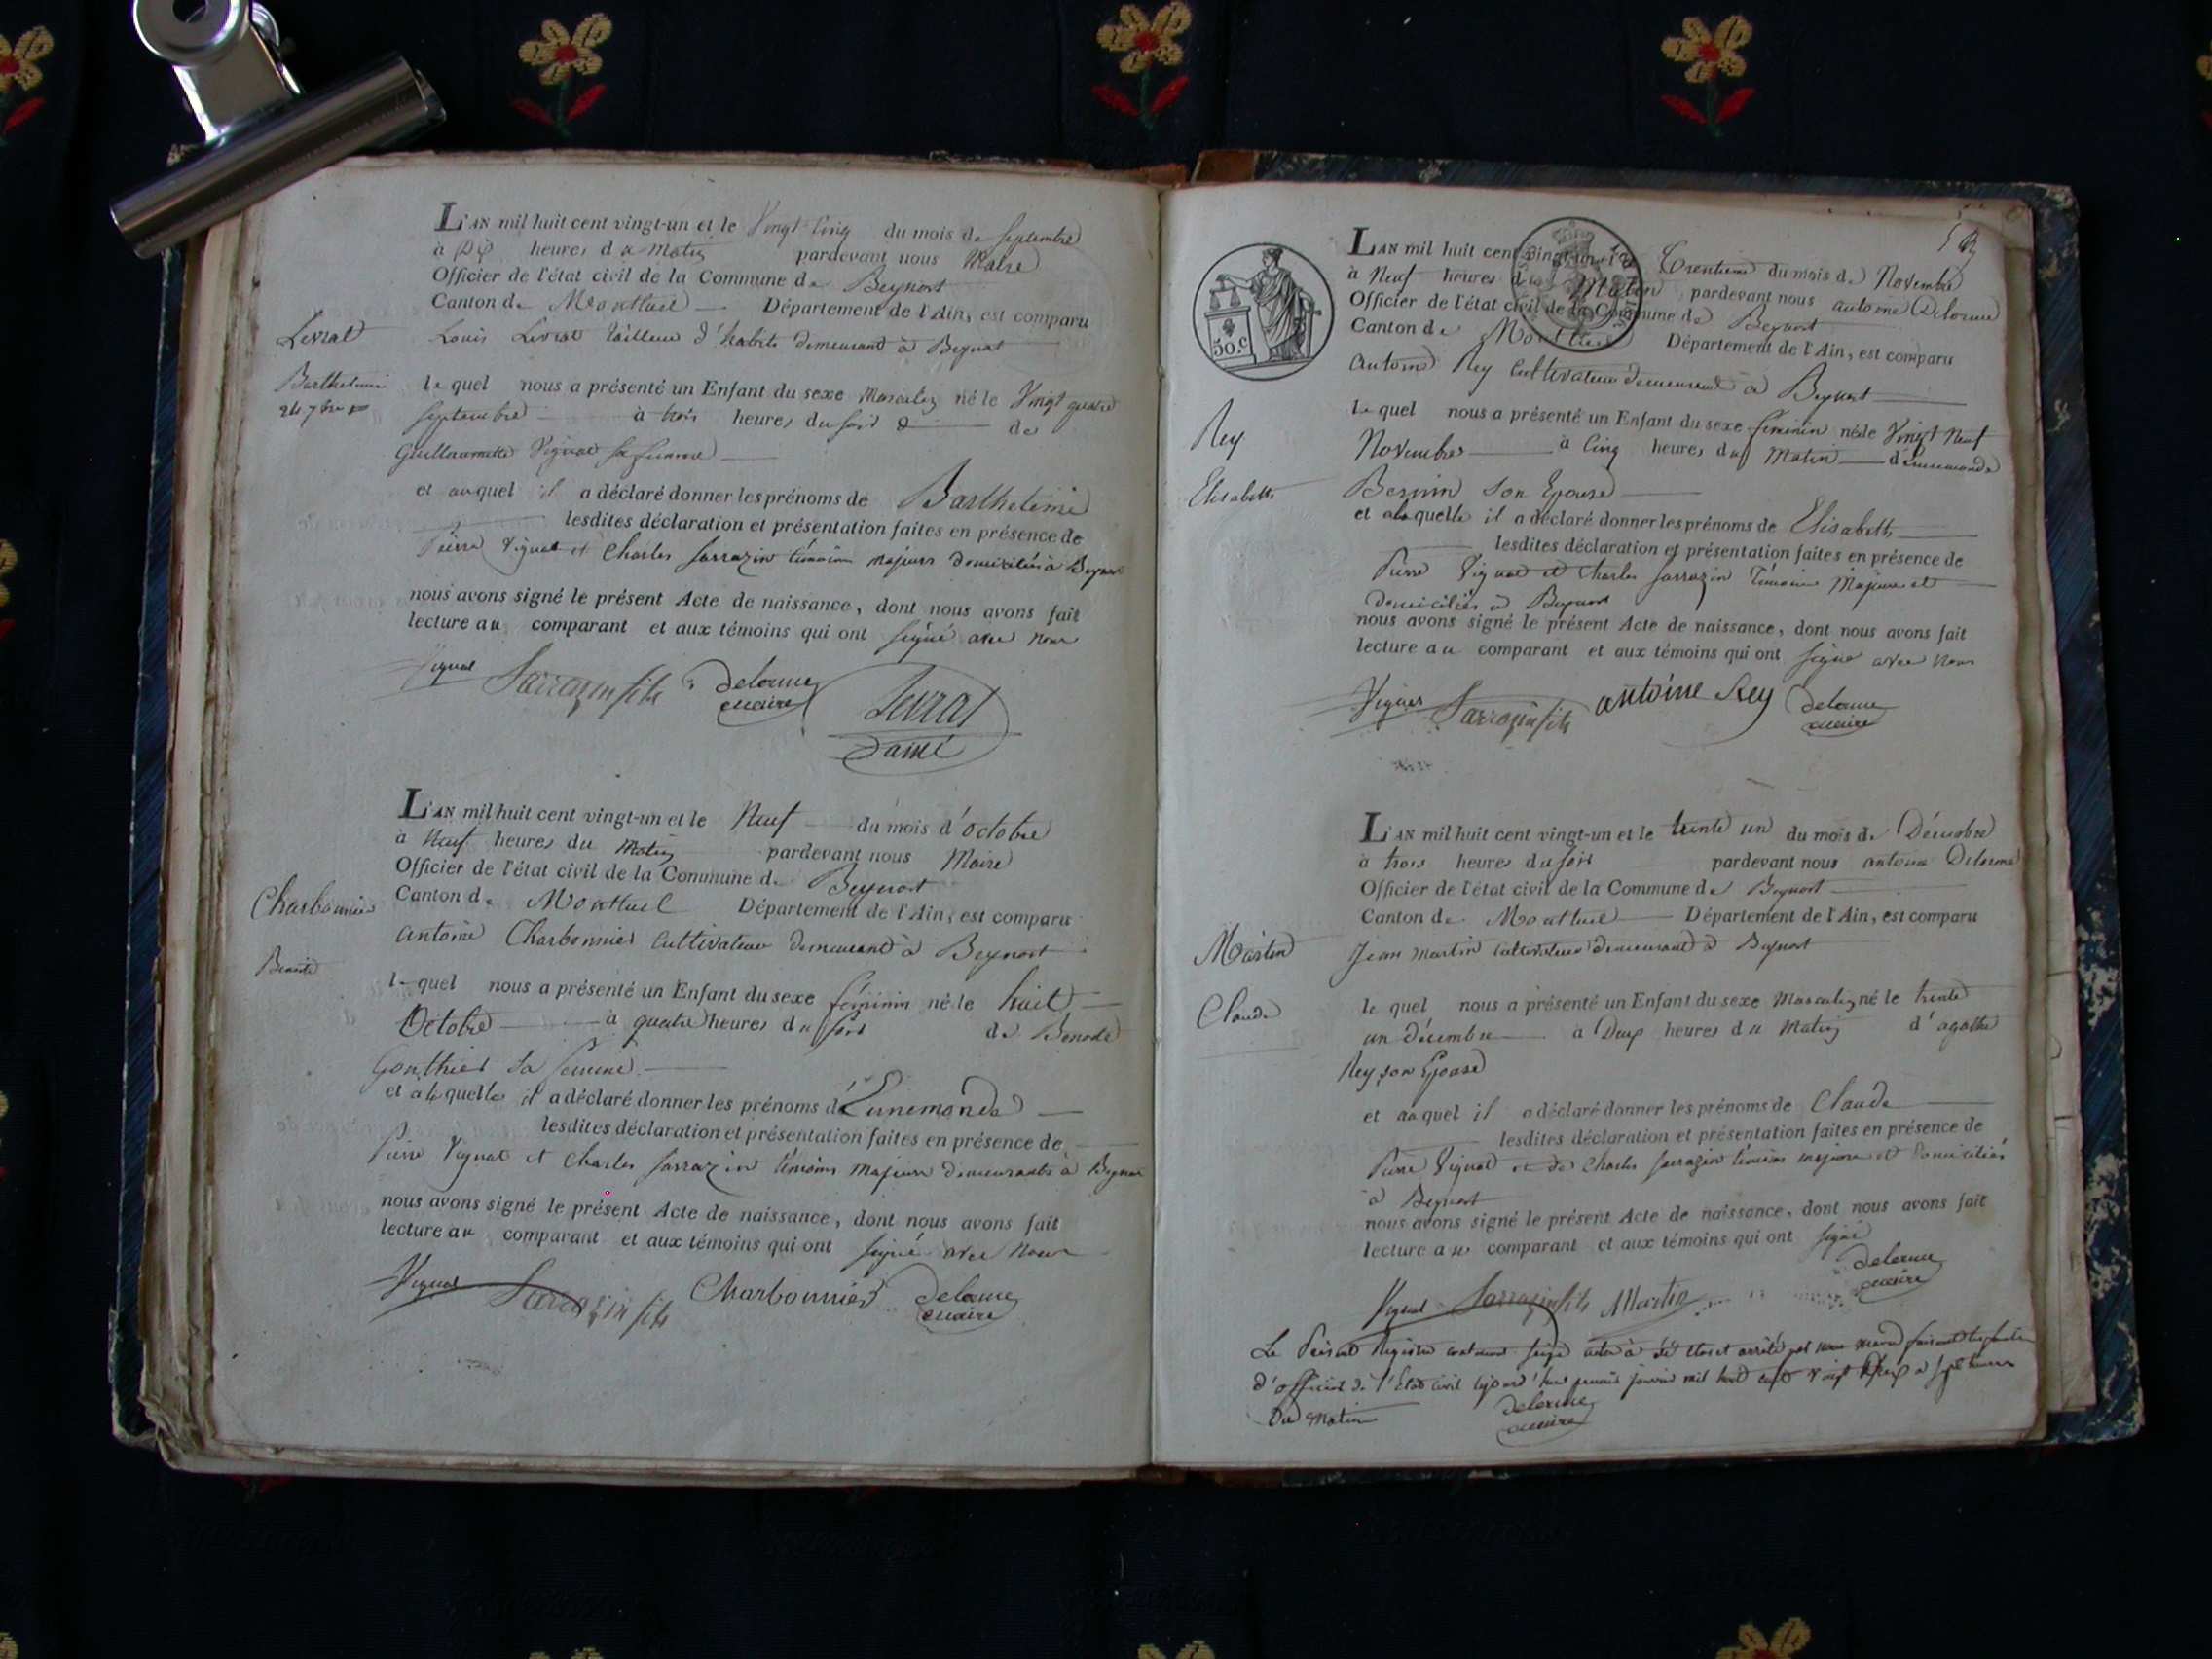 L'AN mil huit cent vingt-un et le Vingt Cinq du mois de Septembre
à Dix heures du Matin pardevant nous Maire
Officier de l'état civil de la Commune de Beynost
Canton de Montluel Département de l'Ain, est comparu
Levrat
Louis Levrat tailleur d'habits demeurant à Beynost
Barthelemi
24 7bre
lequel nous a présenté un Enfant du sexe Masculin né le Vingt quatre
Septembre à trois heures du soir de
Guillaumette Vignat sa femme
et auquel il a déclaré donner les prénoms de Barthelemi
lesdites déclaration et présentation faites en présence de
Pierre Vignat et Charles Sarrazin témoins majeurs domiciliés à Beynost
nous avons signé le présent Acte de naissance, dont nous avons fait
lecture au comparant et aux témoins qui ont signé avec nous
Vignat Sarrazin fils delorme maire Levrat
L'AN mil huit cent vingt-un et le Neuf du mois d'octobre
à Neuf heures du Matin pardevant nous Maire
Officier de l'état civil de la Commune de Beynost
Canton de Montluel Département de l'Ain, est comparu
Charbonnier
antoine Charbonnier Cultivateur demeurant à Beynost
lequel nous a présenté un Enfant du sexe féminin né le huit
Octobre à quatre heures du soir de Benoite
Gonthier sa femme
et à laquelle il a déclaré donner les prénoms d'Ennemonde
lesdites déclaration et présentation faites en présence de
Pierre Vignat et Charles Sarrazin témoins majeurs demeurants à Beynost
nous avons signé le présent Acte de naissance, dont nous avons fait
lecture au comparant et aux témoins qui ont signé avec nous
Vignat Sarrazin fils Charbonnier delorme maire
50.c
L'AN mil huit cent vingt-un et le Trentieme du mois de Novembre
à Neuf heures du Matin pardevant nous antoine Delorme
Officier de l'état civil de la Commune de Beynost
Canton de Montluel Département de l'Ain, est comparu
Antoine Rey Cultivateur demeurant à Beynost
Rey
lequel nous a présenté un Enfant du sexe feminin né le Vingt Neuf
Novembre à Cinq heures du Matin d'Ennemonde
Elisabeth
son Epouse
et à laquelle il a déclaré donner les prénoms de Elisabeth
lesdites déclaration et présentation faites en présence de
Pierre Vignat et Charles Sarrazin témoins Majeurs et
domiciliés à Beynost
nous avons signé le présent Acte de naissance, dont nous avons fait
lecture au comparant et aux témoins qui ont signé avec nous
Vignat Sarrazin fils antoine Rey delorme maire
L'AN mil huit cent vingt-un et le trente un du mois de Décembre
à trois heures du soir pardevant nous antoine Delorme
Officier de l'état civil de la Commune de Beynost
Canton de Montluel Département de l'Ain, est comparu
Martin
Jean Martin cultivateur demeurant à Beynost
Claude
lequel nous a présenté un Enfant du sexe Masculin né le trente
un décembre à Deux heures du Matin d'agathe
Rey son Epouse
et auquel il a déclaré donner les prénoms de Claude
lesdites déclaration et présentation faites en présence de
Pierre Vignat et de Charles Sarrazin témoins majeurs et domiciliés
à Beynost
nous avons signé le présent Acte de naissance, dont nous avons fait
lecture au comparant et aux témoins qui ont signé
delorme maire
Vignat Sarrazin fils Martin
Le Présent Registre contenant seize actes a été clos et arrêté par nous maire faisant les fonctions
d'officier de l'Etat civil aujourd'hui premier janvier mil huit cent vingt Deux à sept heures
Du Matin
delorme maire